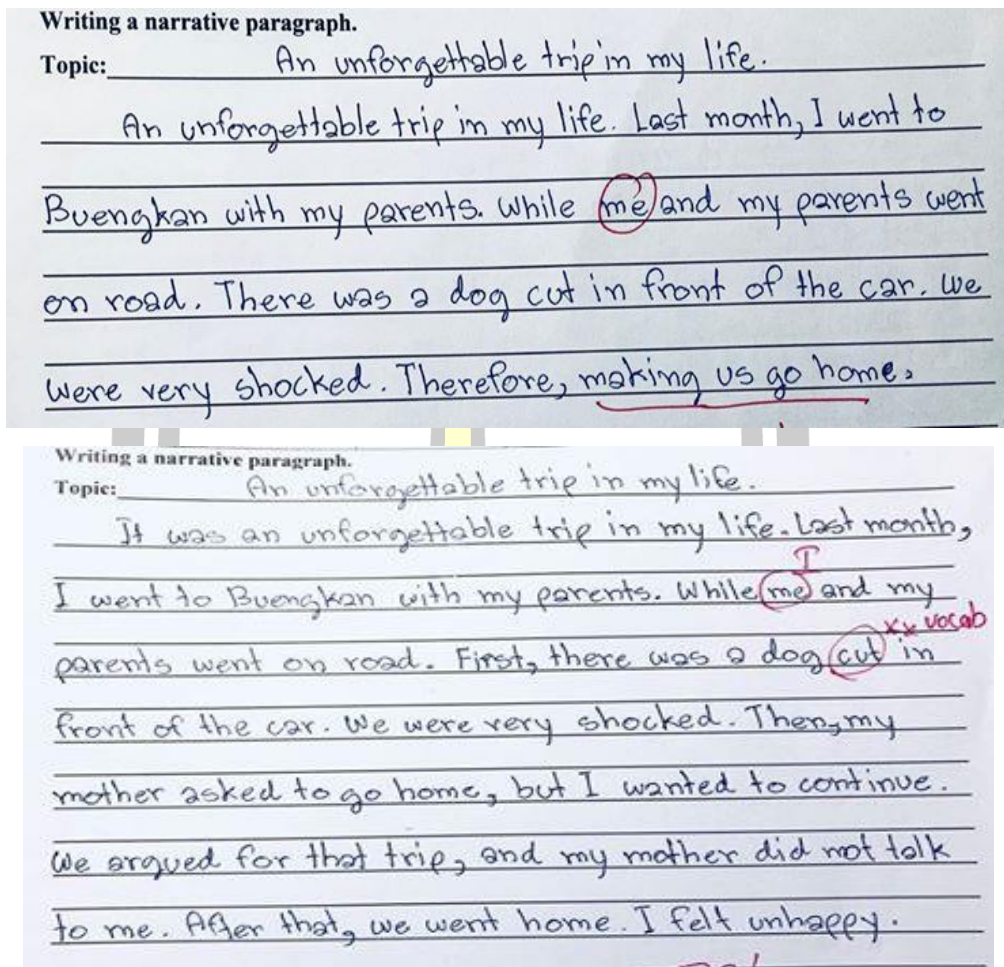 Writing a narrative paragraph.
Topic: An unforgettable trip in my life.
An unforgettable trip in my life. Last month, I went to
Buengkan with my parents. While me and my parents went
on road. There was a dog cut in front of the car. We
were very shocked. Therefore, making us go home.
Writing a narrative paragraph.
Topic: An unforgettable trip in my life.
It was an unforgettable trip in my life. Last month,
I
I went to Buengkan with my parents. While me and my
xx vocab
parents went on road. First, there was a dog cut in
front of the car. We were very shocked. Then, my
mother asked to go home, but I wanted to continue.
We argued for that trip, and my mother did not talk
to me. After that, we went home. I felt unhappy.